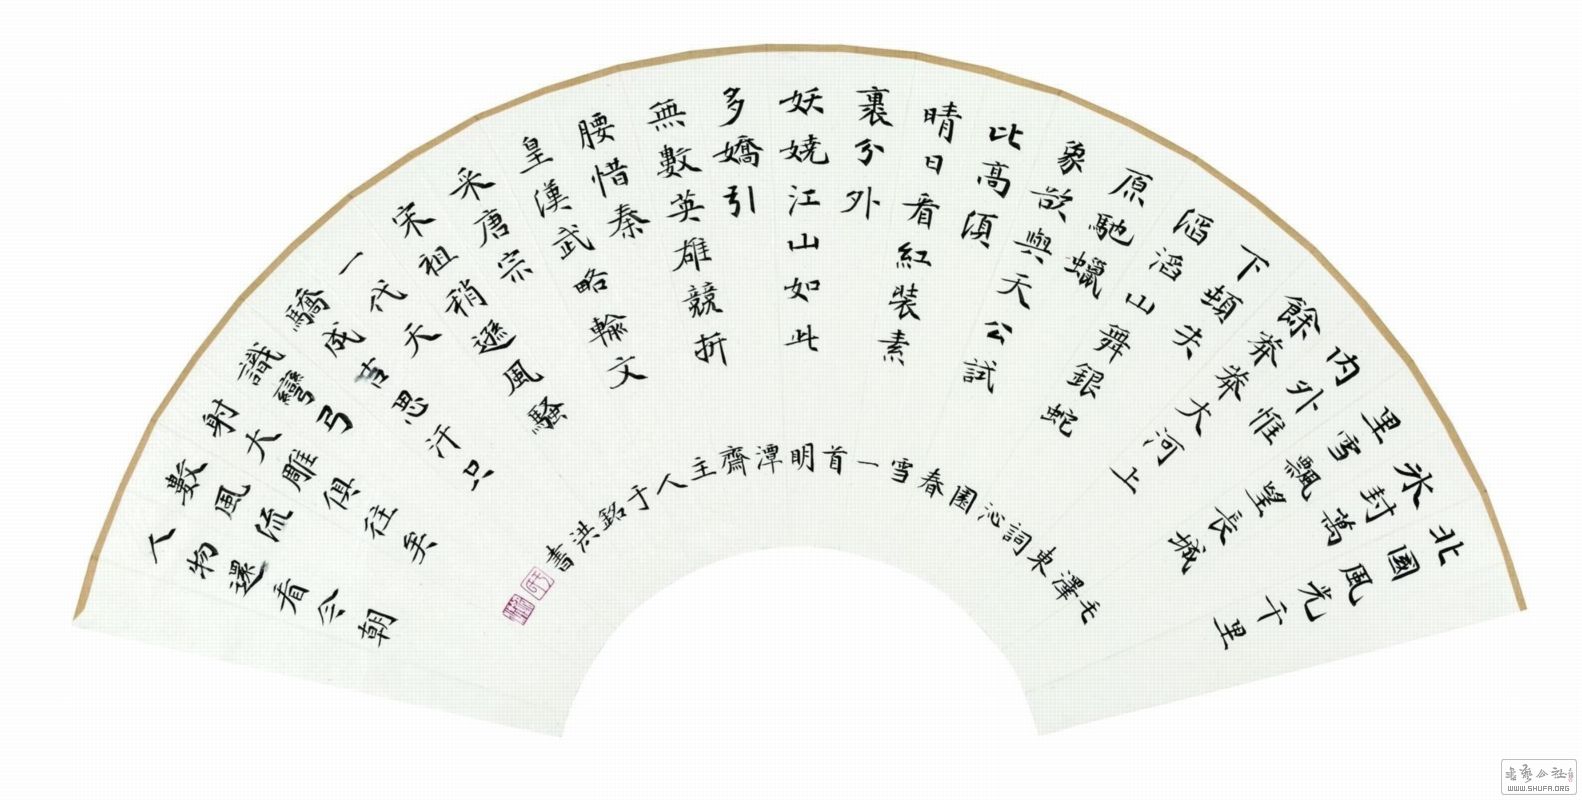 北國風光千里
冰封萬
里雪飄望長城
内外惟
餘莽莽大河上
下頓失
滔滔山舞銀蛇
原馳蠟
象欲與天公試
比高須
晴日看紅裝素
裹分外
妖嬈江山如此
多嬌引
無數英雄競折
腰惜秦
皇漢武略輸文
采唐宗
宋祖稍遜風騷
一代天
驕成吉思汗只
識彎弓
射大雕俱往矣
數風流
人物還看今朝
毛澤東詞沁園春雪一首明潭齋主人于銘洪書
WWW.SHUFA.ORG